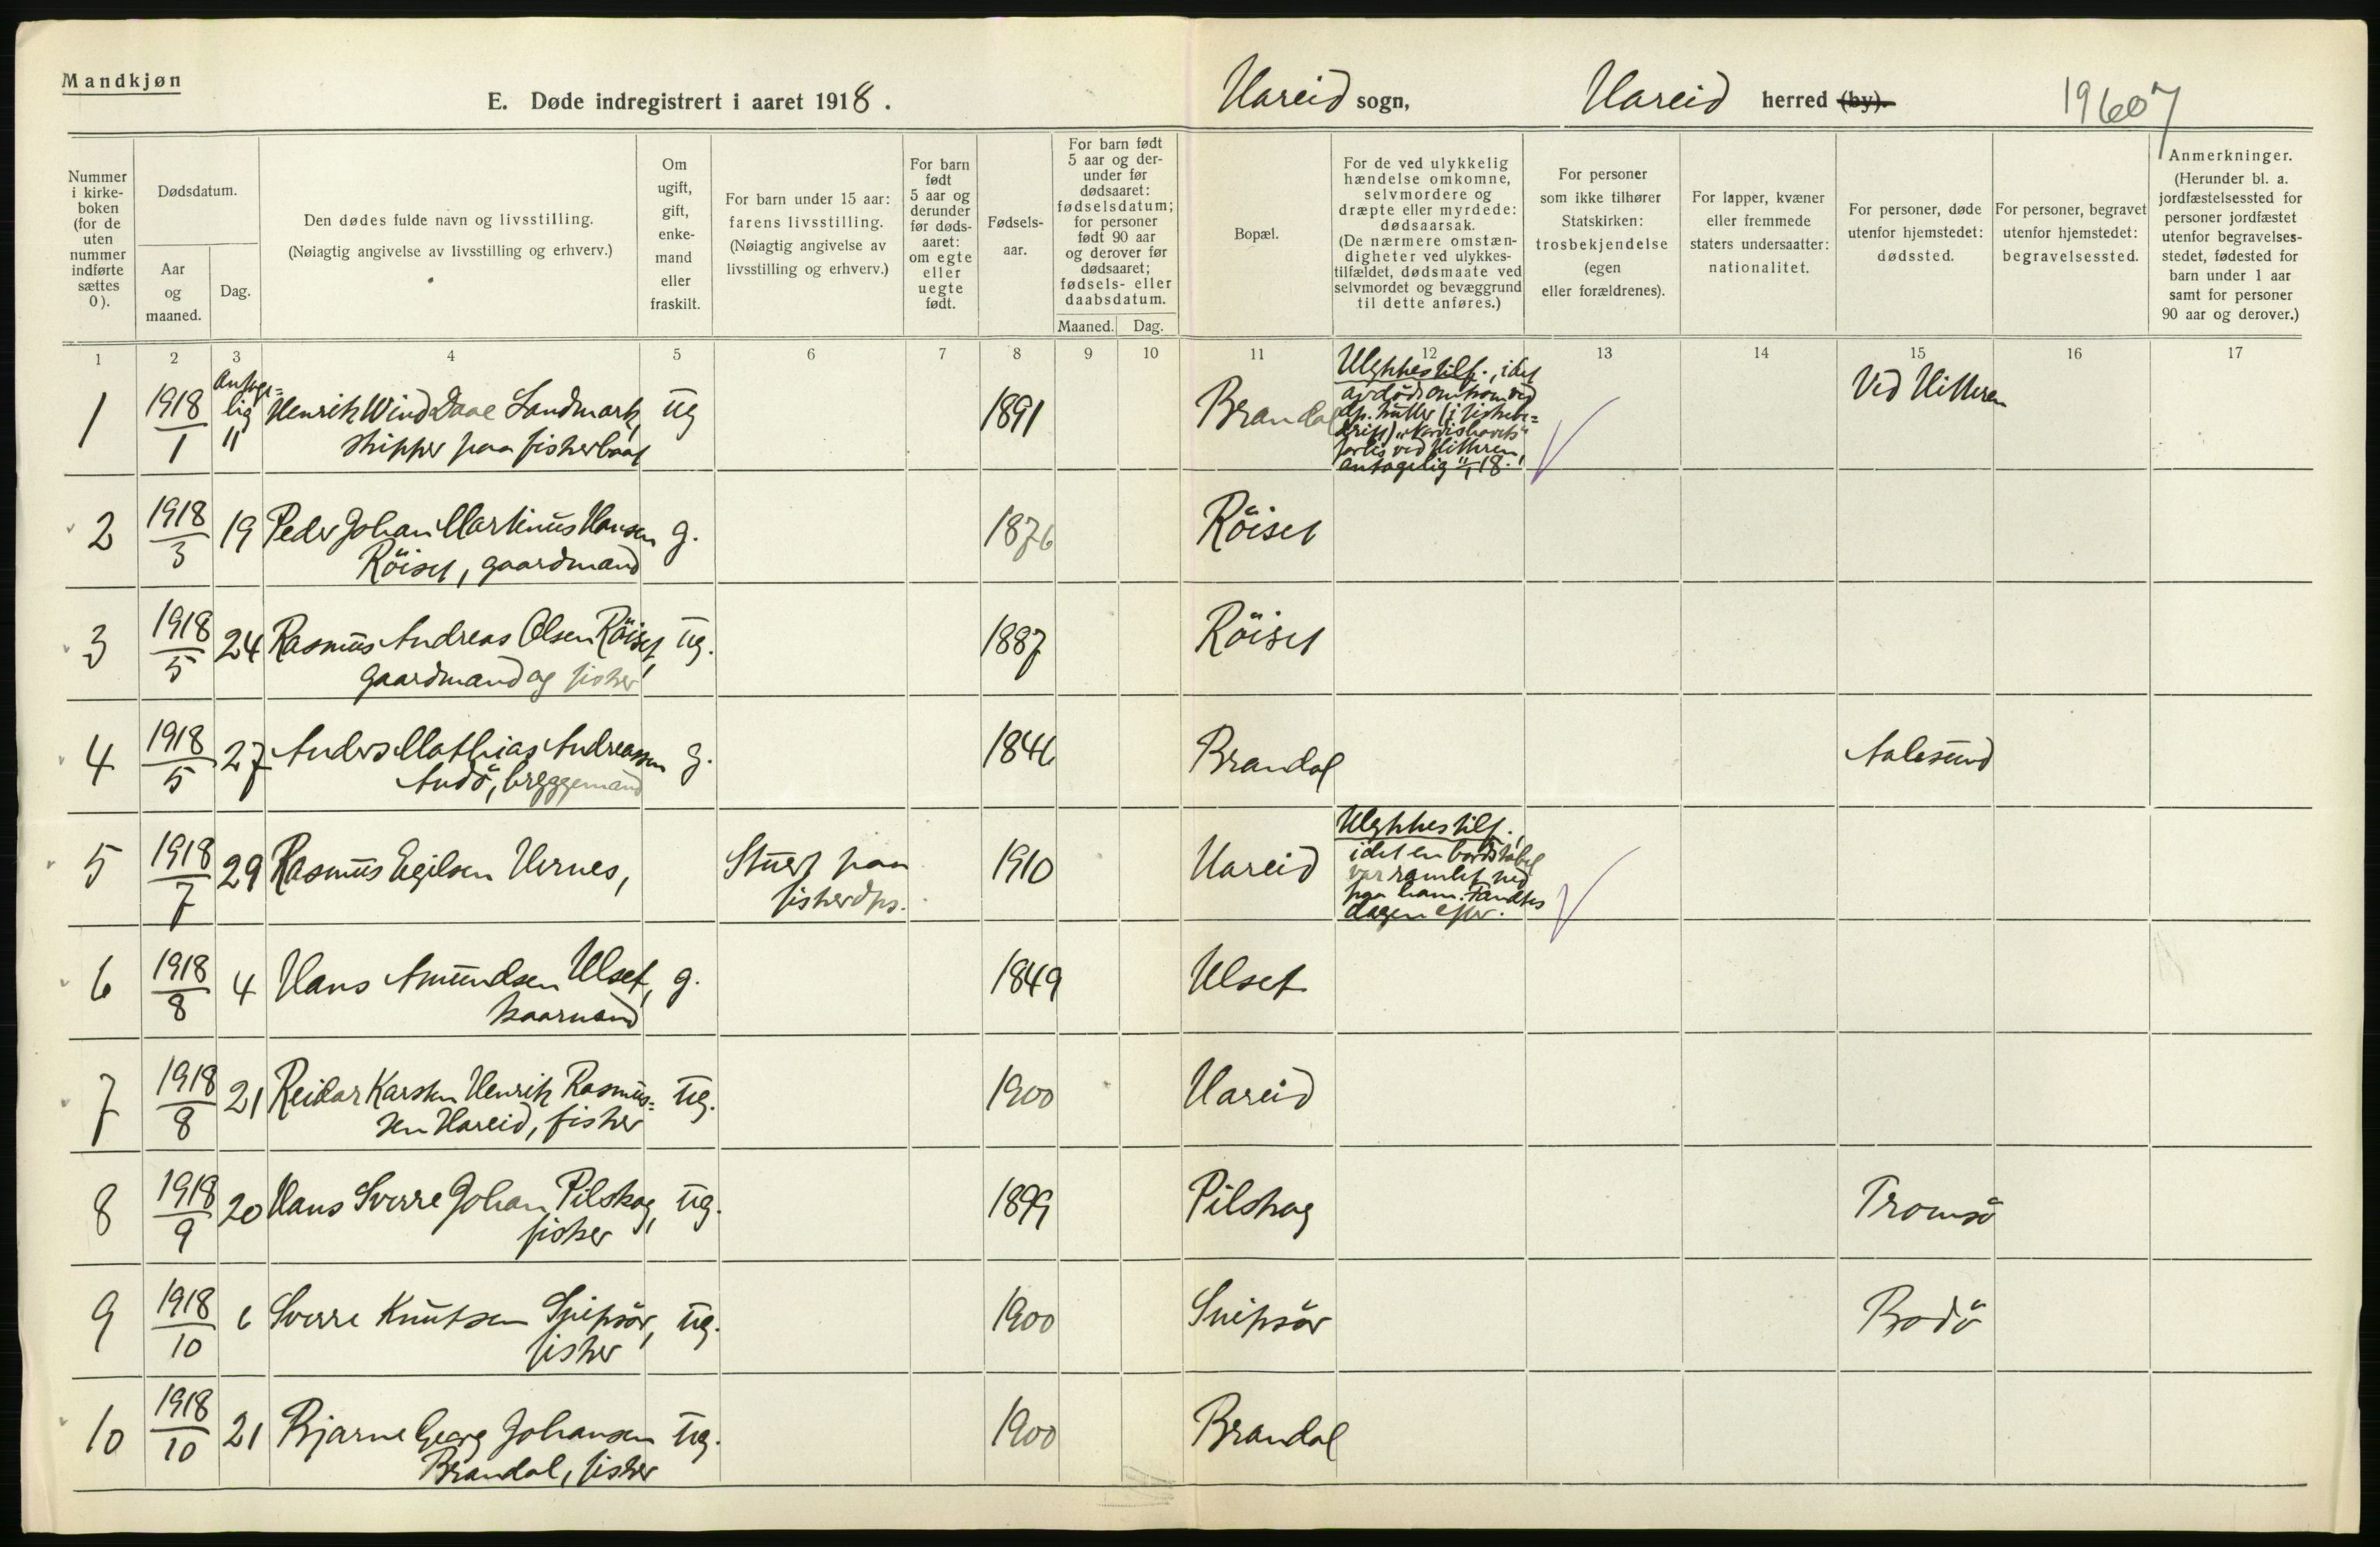 Mandkjøn
E. Døde indregistrert i aaret 1918.
Hareid sogn, Hareid herred (by).
19607
Nummer i kirke-boken (for de uten nummer indførte sættes 0).
Dødsdatum.
Aar og maaned.
Dag.
Den dødes fulde navn og livsstilling.
(Nøiagtig angivelse av livsstilling og erhverv.)
Om ugift, gift, enke-mand eller fraskilt.
For barn under 15 aar: farens livsstilling. (Nøiagtig angivelse av livsstilling og erhverv.)
For barn født 5 aar og derunder før døds-aaret: om egte eller uegte født.
Fødsels-aar.
For barn født 5 aar og der-under før dødsaaret: fødselsdatum; for personer født 90 aar og derover før dødsaaret; fødsels- eller daabsdatum.
Maaned. Dag.
Bopæl.
For de ved ulykkelig hændelse omkomne, selvmordere og dræpte eller myrdede: dødsaarsak. (De nærmere omstæn-digheter ved ulykkes-tilfældet, dødsmaate ved selvmordet og bevæggrund til dette anføres.)
For personer som ikke tilhører Statskirken: trosbekjendelse (egen eller forældrenes).
For lapper, kvæner eller fremmede staters undersaatter: nationalitet.
For personer, døde utenfor hjemstedet: dødssted.
For personer, begravet utenfor hjemstedet: begravelsessted.
Anmerkninger. (Herunder bl. a. jordfæstelsessted for personer jordfæstet utenfor begravelses-stedet, fødested for barn under 1 aar samt for personer 90 aar og derover.)
1 2 3 4 5 6 7 8 9 10 11 12 13 14 15 16 17
1 1918/1 Antage=lig 11 Henrik Wind Daae Landmark, ug 1891 Brandal Ved Hitteren
skipper paa fiskerbaat
Ulykkestilf., idet
avdöde omkom ved
dp. kutter (i fiskebe=
drift) "Nordishavets"
forlis ved Hitteren,
antagelig 11/1 18.
2 1918/3 19 Peder Johan Martinus Hansen g. 1876 Röiset
Röiset, gaardmand
3 1918/5 24 Rasmus Andreas Olsen Röiset, ug. 1887 Röiset
gaardmand og fisker
4 1918/5 27 Anders Mathias Andreassen g. 1846 Brandal Aalesund
Andö, bryggemand
5 1918/7 29 Rasmus Egilsen Hernes, Stuert paa 1910 Hareid
fiskerdps.
Ulykkestilf.,
idet en bordstabel
var ramlet ned
paa ham. Fandtes
dagen efter.
6 1918/8 4 Hans Amundsen Ulset, g. 1849 Ulset
kaarmand
7 1918/8 21 Reidar Karsten Henrik Rasmus= ug. 1900 Hareid
sen Hareid, fisker
8 1918/9 20 Hans Sverre Johan Pilskog, ug. 1899 Pilskog Tromsö
fisker
9 1918/10 6 Sverre Knutsen Snipsör, ug. 1900 Snipsör Bodö
fisker
10 1918/10 21 Bjarne Georg Johansen ug. 1900 Brandal
Brandal, fisker